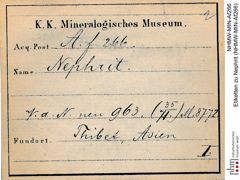 K. K. Mineralogisches Museum.
Acq. Post A. f 266
Name Nephrit.
V. d. N. neu 963. (35/II.) M. 3772
Fundort. Thibet, Asien
1.
NHMW-MIN-AG266
Etiketten zu Nephrit (NHMW-MIN-AG266)
nhm